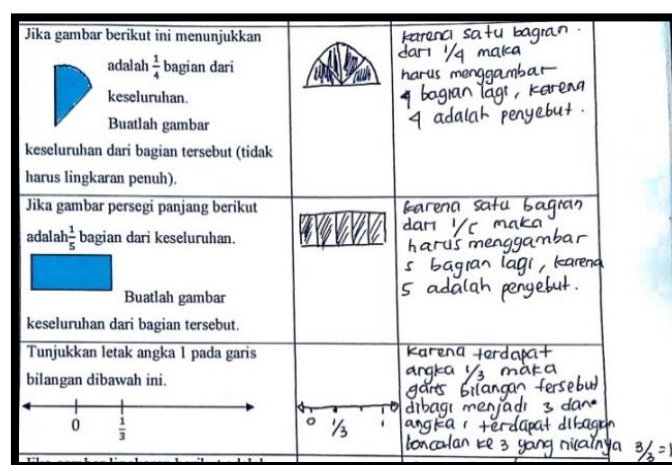 Jika gambar berikut ini menunjukkan
adalah 1/4 bagian dari
keseluruhan.
Buatlah gambar
keseluruhan dari bagian tersebut (tidak
harus lingkaran penuh).
karena satu bagian
dari 1/4 maka
harus menggambar
4 bagian lagi, karena
4 adalah penyebut.
Jika gambar persegi panjang berikut
adalah 1/5 bagian dari keseluruhan.
Buatlah gambar
keseluruhan dari bagian tersebut.
karena satu bagian
dari 1/5 maka
harus menggambar
5 bagian lagi, karena
5 adalah penyebut.
Tunjukkan letak angka 1 pada garis
bilangan dibawah ini.
0 1/3
0 1/3 1
karena terdapat
angka 1/3 maka
garis bilangan tersebut
dibagi menjadi 3 dan
angka 1 terdapat dibagian
loncatan ke 3 yang nilainya 3/3 = 1